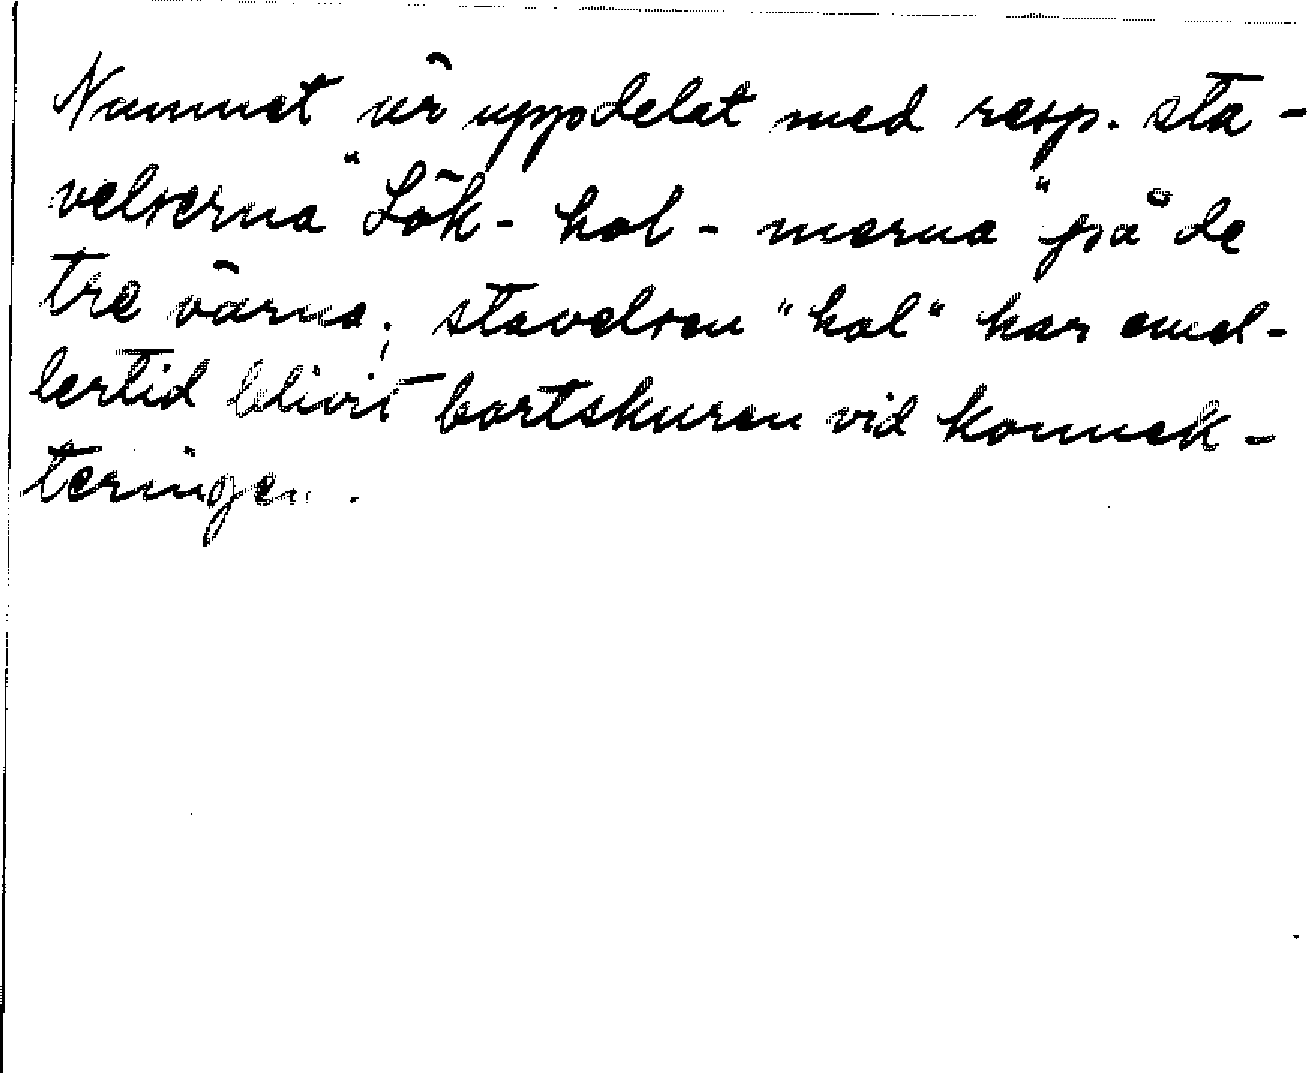 Namnet är uppdelat med resp. sta-
velserna "Lök-hol-marna" på de
tre öarna; stavelsen "hol" har emel-
lertid blivit bortskuren vid konnek-
teringen.